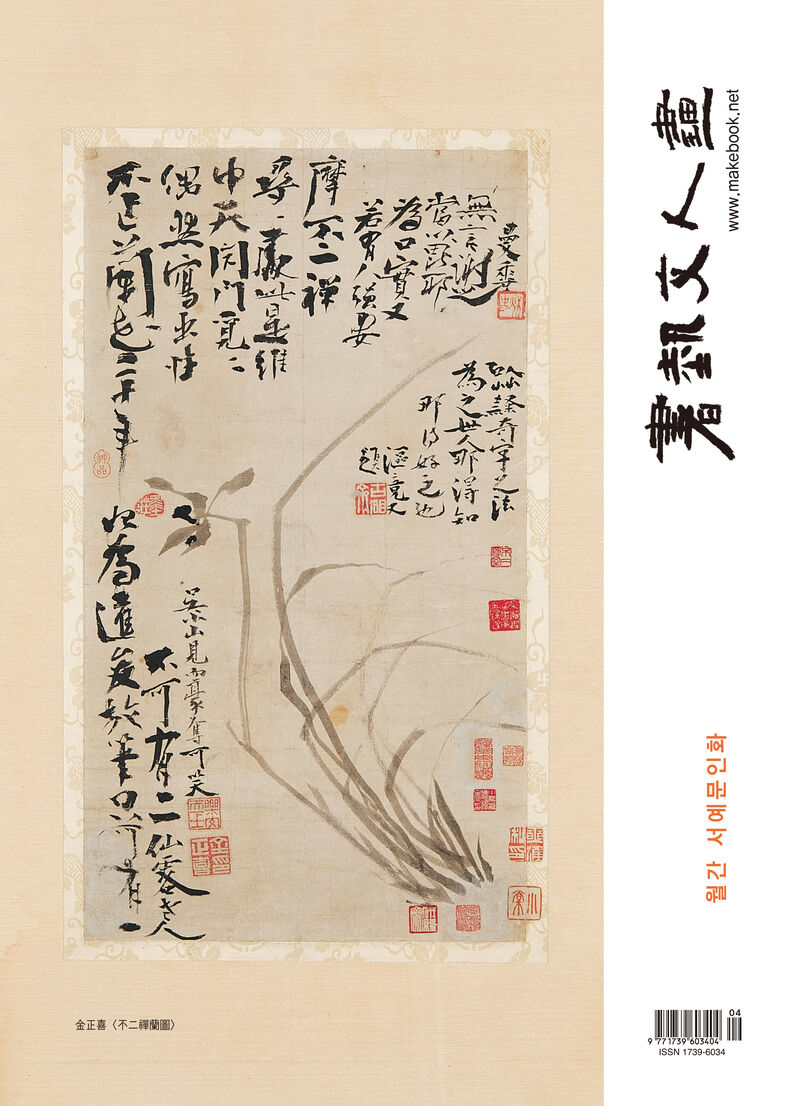 書藝文人畵
www.makebook.net
월간 서예문인화
不作蘭花二十年
偶然寫出性
中天閉門覓〻
尋〻處此是維
摩不二禪
若有人强要
爲口實又
當以毘耶
無言謝之
曼香
以草隸奇字之法
爲之世人那得知
那得好之也
漚竟又
題
始爲達俊放筆只可有一
不可有二仙客老人
吳小山見而豪奪可笑
金正喜〈不二禪蘭圖〉
04
9 771739 603404
ISSN 1739-6034